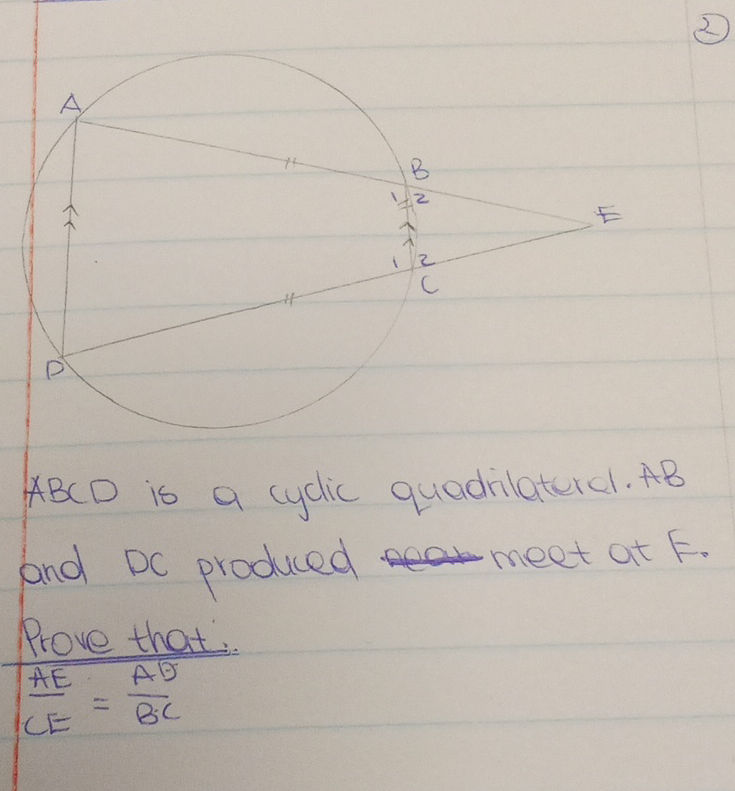 2
A
B
1 2
E
1 2
C
D
ABCD is a cyclic quadrilateral. AB
and DC produced meet at E.
Prove that:
AE/CE = AD/BC